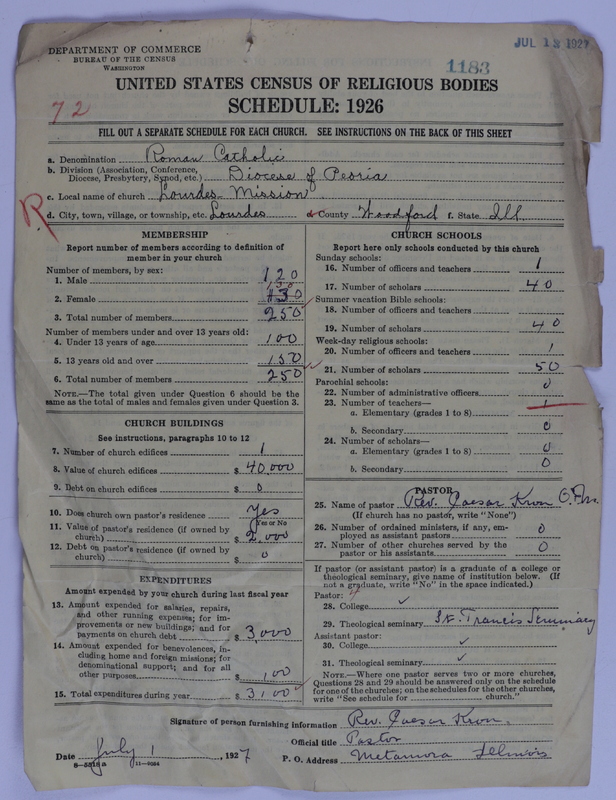 DEPARTMENT OF COMMERCE
BUREAU OF THE CENSUS
WASHINGTON
JUL 13 1927
1183
UNITED STATES CENSUS OF RELIGIOUS BODIES
SCHEDULE: 1926
72
FILL OUT A SEPARATE SCHEDULE FOR EACH CHURCH. SEE INSTRUCTIONS ON THE BACK OF THIS SHEET
a. Denomination Roman Catholic
b. Division (Association, Conference, Diocese, Presbytery, Synod, etc.) Diocese of Peoria
c. Local name of church Lourdes Mission
R
d. City, town, village, or township, etc. Lourdes e. County Woodford f. State Ill.
MEMBERSHIP
Report number of members according to definition of
member in your church
Number of members, by sex:
1. Male 120
2. Female 130
3. Total number of members 250
Number of members under and over 13 years old:
4. Under 13 years of age 100
5. 13 years old and over 150
6. Total number of members 250
NOTE.—The total given under Question 6 should be the
same as the total of males and females given under Question 3.
CHURCH BUILDINGS
See instructions, paragraphs 10 to 12
7. Number of church edifices 1
8. Value of church edifices $ 40,000
9. Debt on church edifices $ 0
10. Does church own pastor's residence Yes
Yes or No
11. Value of pastor's residence (if owned by
church) $ 2,000
12. Debt on pastor's residence (if owned by
church) $ 0
EXPENDITURES
Amount expended by your church during last fiscal year
13. Amount expended for salaries, repairs,
and other running expenses; for im-
provements or new buildings; and for
payments on church debt $ 3,000
14. Amount expended for benevolences, in-
cluding home and foreign missions; for
denominational support; and for all
other purposes $ 100
15. Total expenditures during year $ 3,100
CHURCH SCHOOLS
Report here only schools conducted by this church
Sunday schools:
16. Number of officers and teachers 1
17. Number of scholars 40
Summer vacation Bible schools:
18. Number of officers and teachers
19. Number of scholars 40
Week-day religious schools:
20. Number of officers and teachers 1
21. Number of scholars 50
Parochial schools:
22. Number of administrative officers 0
23. Number of teachers—
a. Elementary (grades 1 to 8) 1
b. Secondary 0
24. Number of scholars—
a. Elementary (grades 1 to 8) 0
b. Secondary 0
PASTOR
25. Name of pastor Rev. Caesar Kron O.F.M.
(If church has no pastor, write "None")
26. Number of ordained ministers, if any, em-
ployed as assistant pastors 0
27. Number of other churches served by the
pastor or his assistants 0
If pastor (or assistant pastor) is a graduate of a college or
theological seminary, give name of institution below. (If
not a graduate, write "No" in the space indicated.)
Pastor:
28. College ✓
29. Theological seminary St. Francis Seminary
Assistant pastor:
30. College ✓
31. Theological seminary ✓
NOTE.—Where one pastor serves two or more churches,
Questions 28 and 29 should be answered only on the schedule
for one of the churches; on the schedules for the other churches,
write "See schedule for church."
Signature of person furnishing information Rev. Caesar Kron.
Official title Pastor
Date July 1, 1927 P. O. Address Metamora Illinois
8-5318a 11-9984